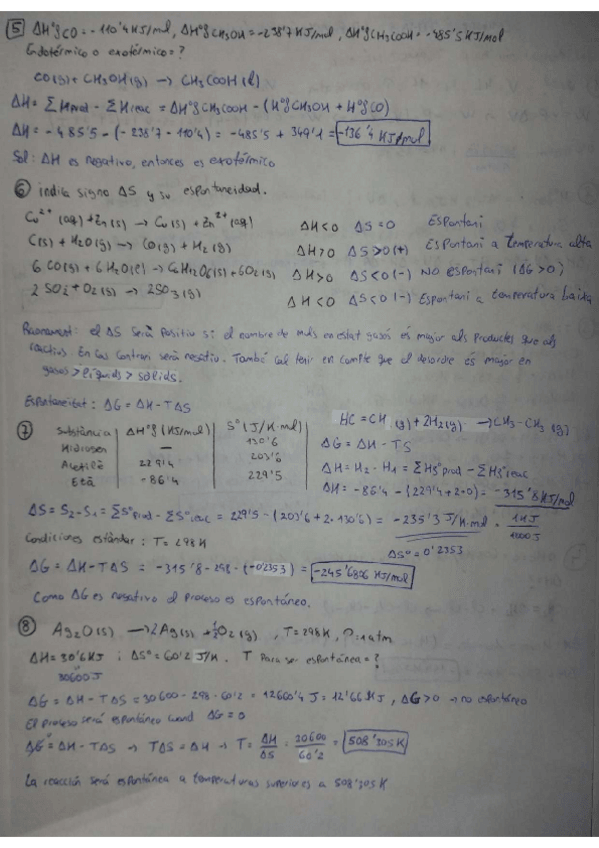 5 ΔHºf CO = -110'4 KJ/mol, ΔHºf CH3OH = -238'7 KJ/mol, ΔHºf CH3COOH = -485'5 KJ/mol
Endotérmico o exotérmico = ?
CO(g) + CH3OH(g) → CH3COOH(l)
ΔH = ΣHprod - ΣHreac = ΔHºf CH3COOH - (HºfCH3OH + HºfCO)
ΔH = -485'5 - (-238'7 - 110'4) = -485'5 + 349'1 = -136'4 KJ/mol
Sol: ΔH es negativo, entonces es exotérmico
6 indica signo ΔS y su espontaneidad.
Cu2+ (aq) + Zn(s) → Cu(s) + Zn2+(aq) ΔH<0 ΔS=0 Espontani
C(s) + H2O(g) → CO(g) + H2(g) ΔH>0 ΔS>0(+) Espontani a temperatura alta
6CO(g) + 6H2O(l) → C6H12O6(s) + 6O2(g) ΔH>0 ΔS<0(-) NO espontani (ΔG>0)
2SO2 + O2(g) → 2SO3(g) ΔH<0 ΔS<0(-) Espontani a temperatura baixa
Raonament: el ΔS serà positiu si el nombre de mols en estat gasós és major als productes que als
reactius. En cas contrari serà negatiu. També cal tenir en compte que el desordre és major en
gasos > líquids > sòlids.
Espontaneïtat: ΔG = ΔH - TΔS
7 Substància ΔHºf (KJ/mol) Sº (J/K·mol) HC≡CH (g) + 2H2(g) → CH3-CH3 (g)
Hidrogen — 130'6 ΔG = ΔH - TS
Acetilè 229'4 203'6 ΔH = H2 - H1 = ΣHºf prod - ΣHºf reac
Età -86'4 229'5 ΔH = -86'4 - (229'4 + 2·0) = -315'8 KJ/mol
ΔS = S2 - S1 = ΣSºprod - ΣSºreac = 229'5 - (203'6 + 2·130'6) = -235'3 J/K·mol · 1KJ/1000J
Condiciones estándar: T = 298K ΔSº = 0'2353
ΔG = ΔH - TΔS = -315'8 - 298·(-0'2353) = -245'6806 KJ/mol
Como ΔG es negativo el proceso es espontáneo.
8 Ag2O(s) → 2Ag(s) + ½O2(g), T=298K, P=1atm
ΔH = 30'6KJ i ΔSº = 60'2 J/K. T para ser espontánea = ?
30600J
ΔG = ΔH - TΔS = 30600 - 298·60'2 = 12660'4 J = 12'66 KJ, ΔG>0 → no espontáneo
El proceso será espontáneo cuand ΔG = 0
ΔG = ΔH - TΔS → TΔS = ΔH → T = ΔH/ΔS = 30600/60'2 = 508'305K
La reacción será espontánea a temperaturas superiores a 508'305K